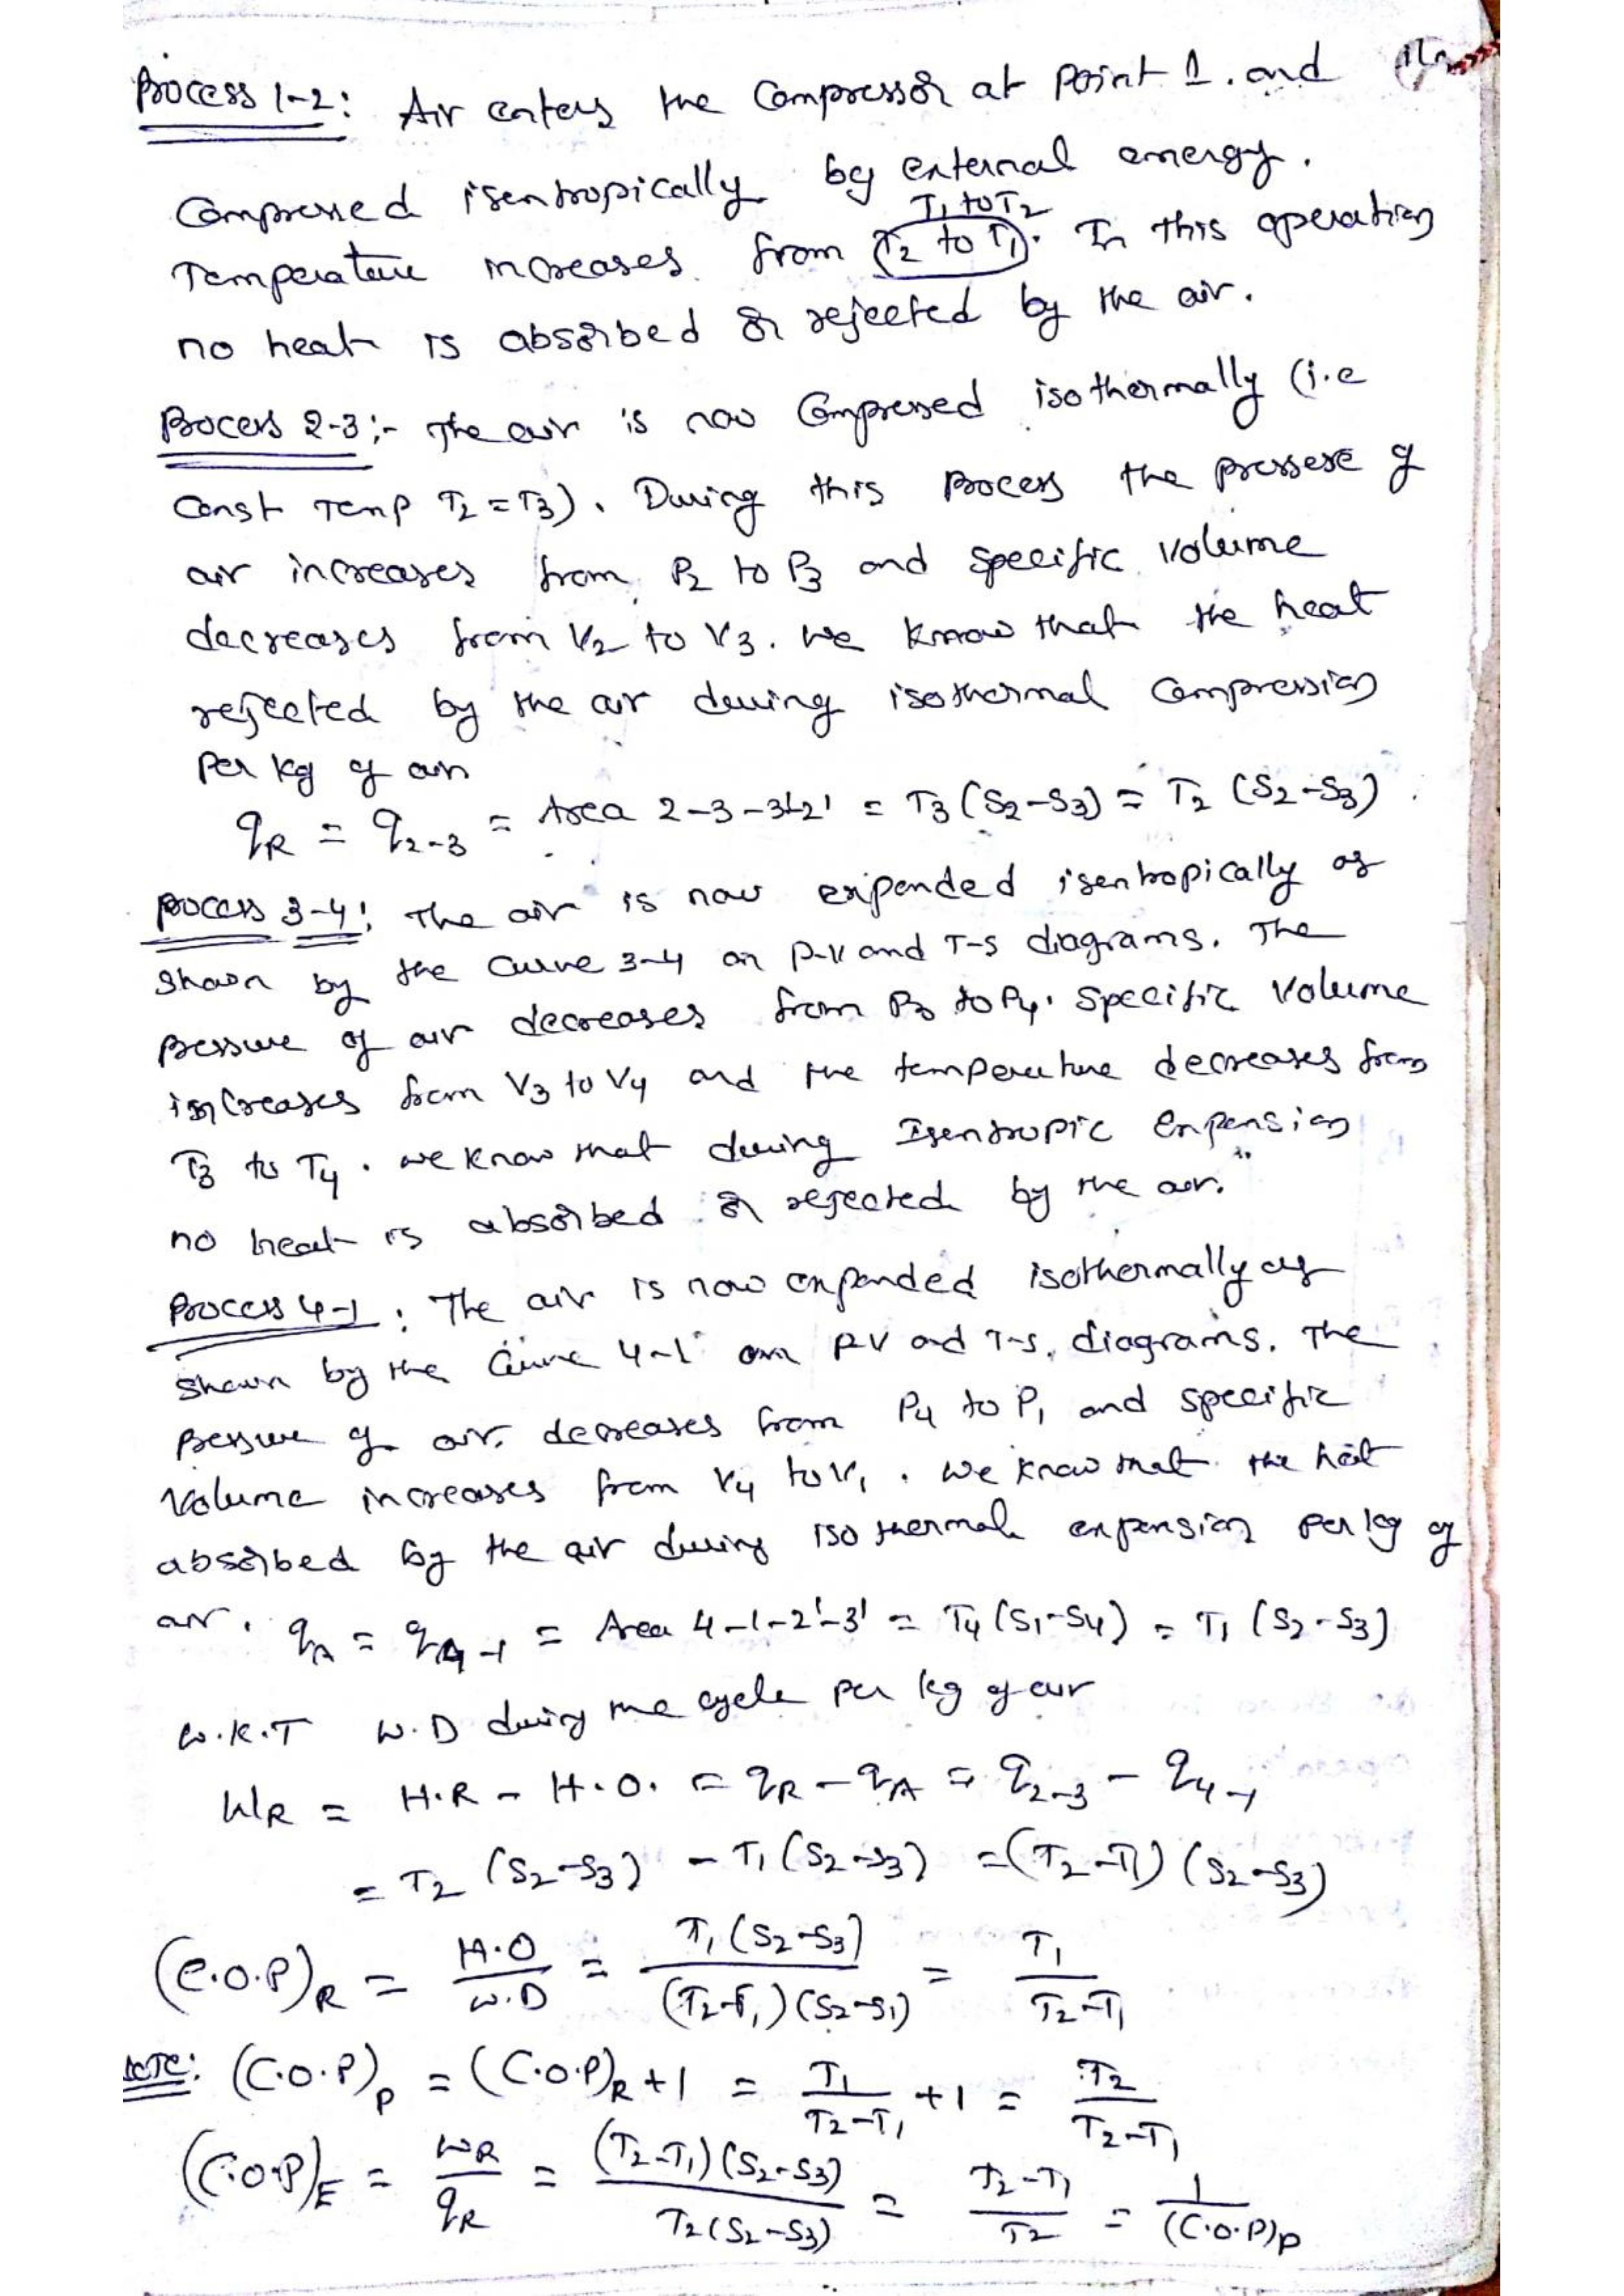 Process 1-2: Air enters the Compressor at Point 1. and
Compressed isentropically by external energy.
T1 to T2
Temperature increases from T2 to T1. In this operation
no heat is absorbed or rejected by the air.
Process 2-3:- The air is now Compressed isothermally (i.e
Const Temp T2 = T3). During this Process the pressere of
air increases from P2 to P3 and specific volume
decreases from V2 to V3. we know that the heat
rejected by the air during isothermal compression
Per kg of air
qR = q2-3 = Area 2-3-3'-2' = T3 (S2-S3) = T2 (S2-S3).
process 3-4: The air is now expended isentropically as
shown by the curve 3-4 on p-v and T-s diagrams. The
Pressure of air decreases from P3 to P4. Specific Volume
increases from V3 to V4 and the temperature decreases from
T3 to T4. we know that during Isentropic Expension
no heat is absorbed or rejected by the air.
Process 4-1: The air is now expended isothermally as
shown by the Curve 4-1 on P-V and T-s. diagrams. The
Pressure of air. decreases from P4 to P1 and specific
Volume increases from V4 to V1. we know that the heat
absorbed by the air during isothermal expension per kg of
air. qA = q4-1 = Area 4-1-2'-3' = T4 (S1-S4) = T1 (S2-S3)
W.K.T W.D during the cycle per kg of air
WR = H.R - H.O. = qR - qA = q2-3 - q4-1
= T2 (S2-S3) - T1 (S2-S3) = (T2-T1) (S2-S3)
(C.O.P)R = H.O / W.D = T1 (S2-S3) / (T2-T1) (S2-S1) = T1 / T2-T1
(C.O.P)P = (C.O.P)R + 1 = T1 / T2-T1 + 1 = T2 / T2-T1
(C.O.P)E = WR / qR = (T2-T1) (S2-S3) / T2 (S2-S3) = T2-T1 / T2 = 1 / (C.O.P)P